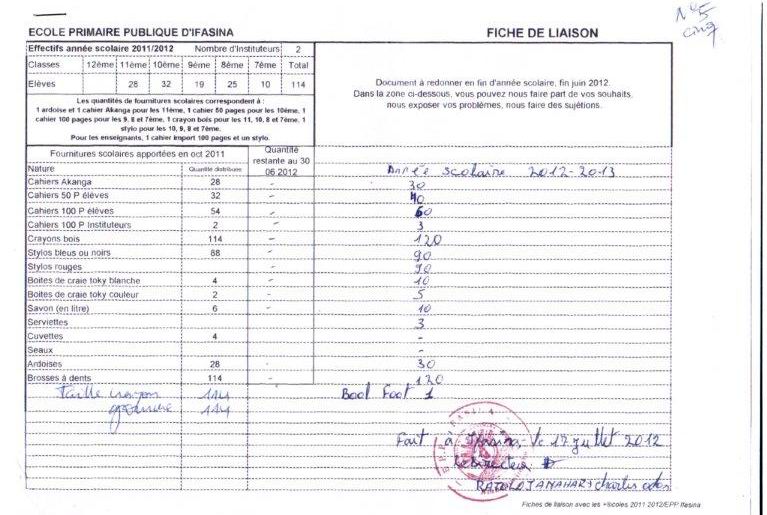 N°5
cinq
ECOLE PRIMAIRE PUBLIQUE D'IFASINA
FICHE DE LIAISON
Effectifs année scolaire 2011/2012 Nombre d'Instituteurs 2
Classes 12ème 11ème 10ème 9ème 8ème 7ème Total
Elèves 28 32 19 25 10 114
Les quantités de fournitures scolaires correspondent à :
1 ardoise et 1 cahier Akanga pour les 11ème, 1 cahier 50 pages pour les 10ème, 1
cahier 100 pages pour les 9, 8 et 7ème, 1 crayon bois pour les 11, 10, 8 et 7ème, 1
stylo pour les 10, 9, 8 et 7ème.
Pour les enseignants, 1 cahier import 100 pages et un stylo.
Document à redonner en fin d'année scolaire, fin juin 2012.
Dans la zone ci-dessous, vous pouvez nous faire part de vos souhaits,
nous exposer vos problèmes, nous faire des sujétions.
Fournitures scolaires apportées en oct 2011
Quantité
restante au 30
06 2012
Nature Quantité distribuée Année scolaire 2012-2013
Cahiers Akanga 28 - 30
Cahiers 50 P élèves 32 - 40
Cahiers 100 P élèves 54 - 60
Cahiers 100 P Instituteurs 2 - 3
Crayons bois 114 - 120
Stylos bleus ou noirs 88 - 90
Stylos rouges - 90
Boites de craie toky blanche 4 - 10
Boites de craie toky couleur 2 - 5
Savon (en litre) 6 - 10
Serviettes 3
Cuvettes 4 - -
Seaux -
Ardoises 28 - 30
Brosses à dents 114 - 120
Taille crayon 114 Bool Foot 1
gommme 114
Fait à Ifasina, le 17 juillet 2012
Le Directeur
Fiches de liaison avec les écoles 2011 2012/EPP Ifasina